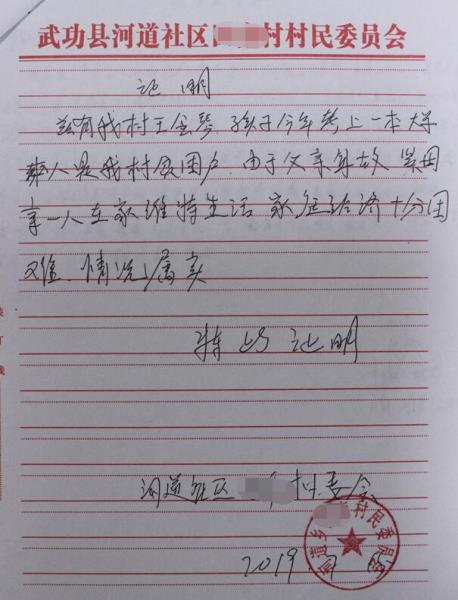 武功县河道社区 村村民委员会
证 明
兹有我村王会琴 孩子今年考上一本大学
本人是我村贫困户 由于父亲身故 家用
一人在家维持生活 家庭经济十分困
难 情况属实
特此证明
河道社区 村委会
2019
河道乡 村民委员会